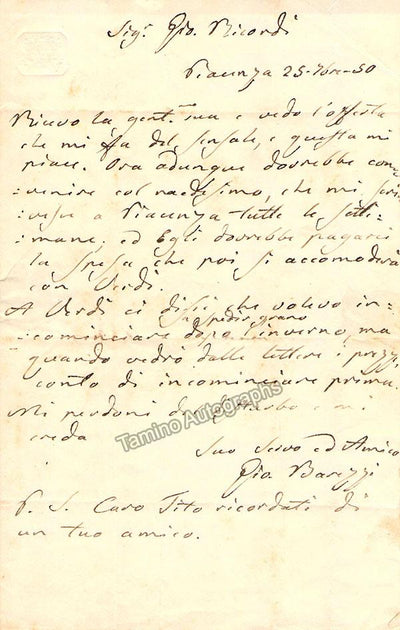 Sig.r Gio. Ricordi
Piacenza 25-7bre-50
Ricevo la gent.ma sua e vedo l'offerta
che mi fa del sensale, e questa mi
piace. Ora adunque dovrebbe con=
=venire col medesimo, che mi scri=
=vesse a Piacenza tutte le setti=
=mane, ed Egli dovrebbe pagare
la spesa che poi si accomoderà
con Verdi.
A Verdi ci dissi che volevo in=
a spedir grano
=cominciare dopo l'inverno, ma
quando vedrò dalle lettere i prezzi,
conto di incominciare prima.
Mi perdoni del disturbo e mi
creda
Suo Servo ed Amico
Gio. Barezzi
P. S. Caro Tito ricordati di
un tuo amico.
Tamino Autographs